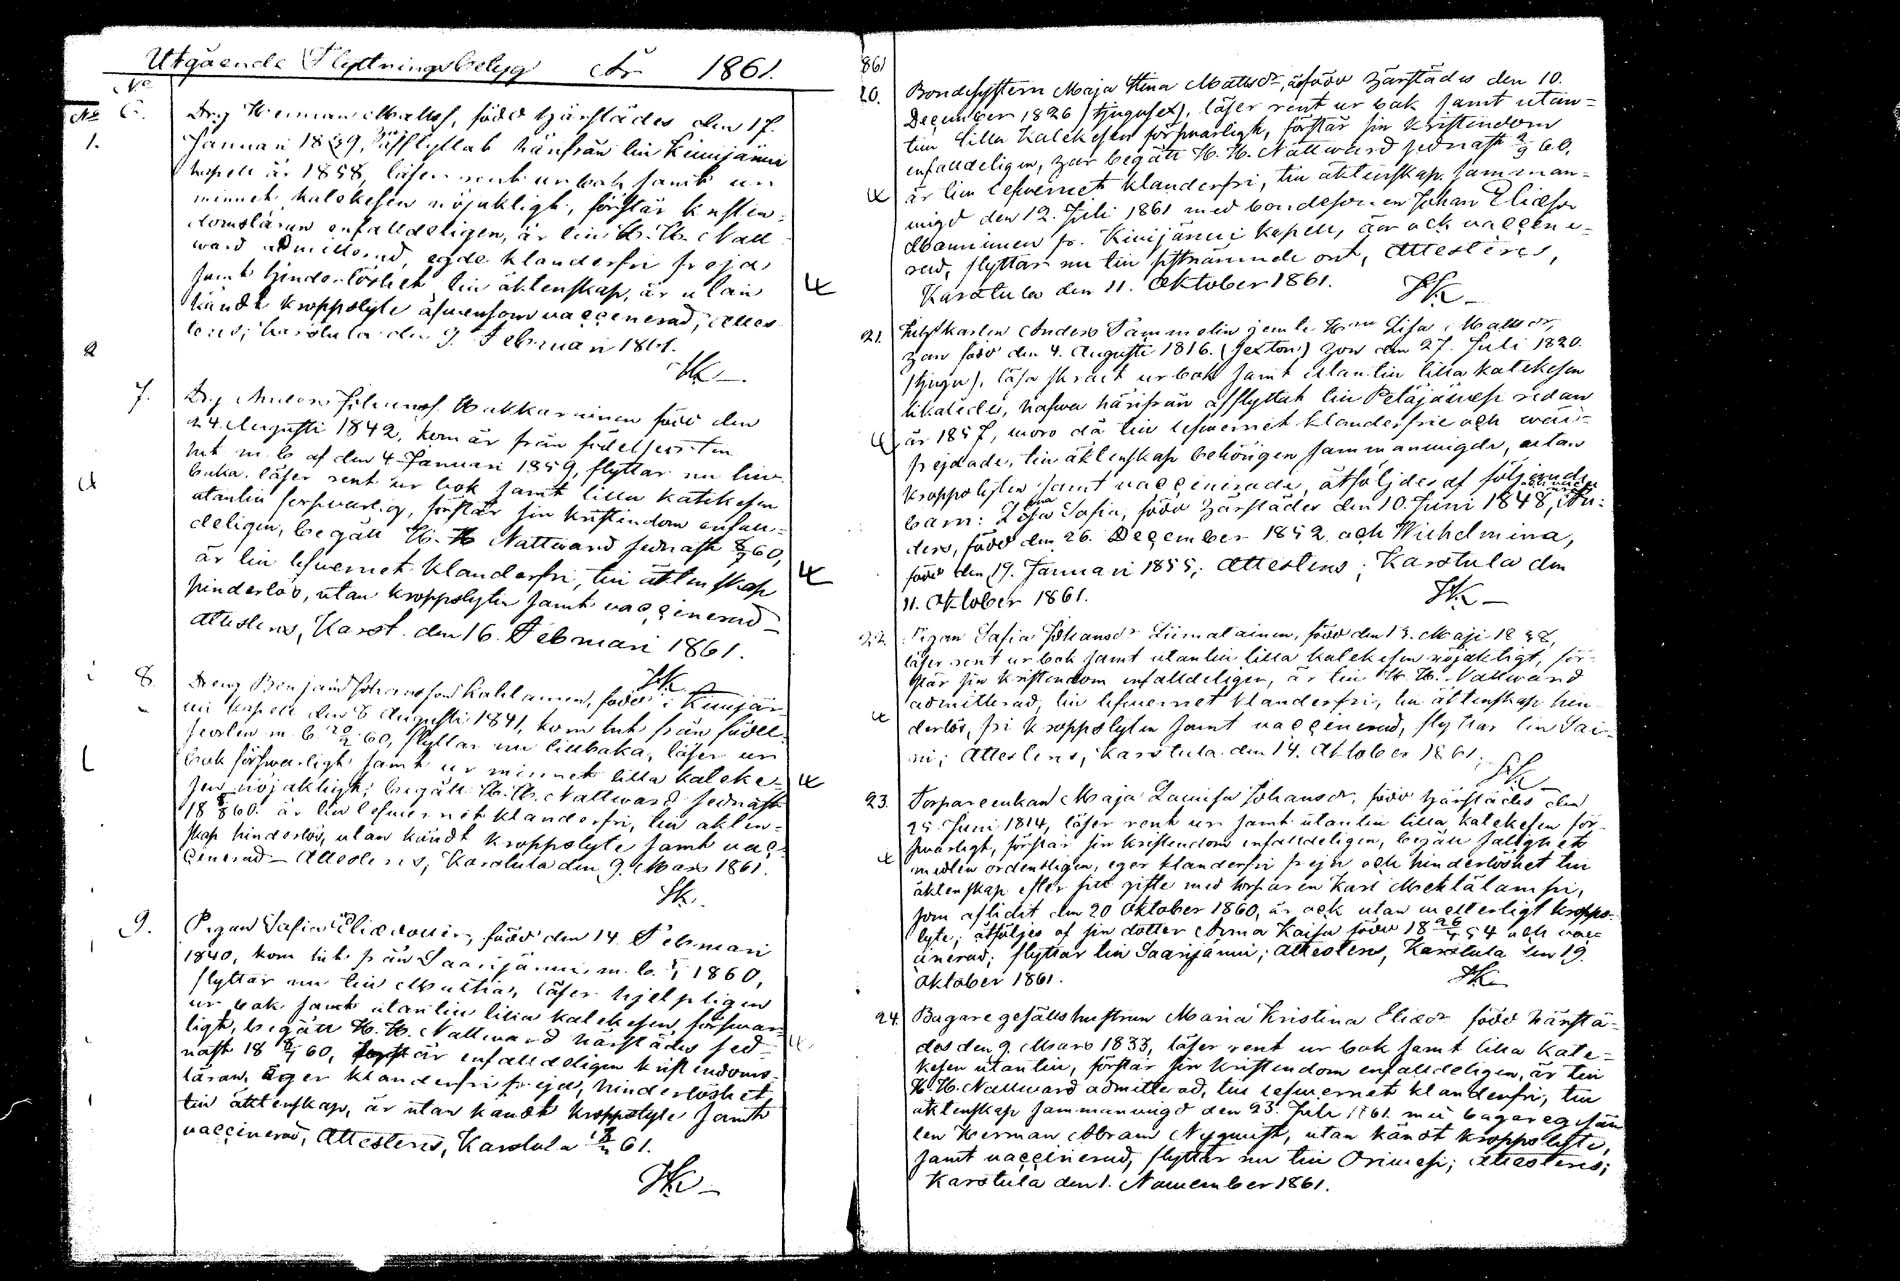 Utgående Flyttningsbetyg År 1861.
No
No 6.
1.
Drg Herman Mattsf, född härstädes den 17.
Januari 1839, afflyttat härifrån till Kivijärvi
kapell år 1858, läser rent ur bok samt ur
minnet katekesen nöjaktigt, förstår kristen-
domsläran enfalldeligen, är till H. H. Natt-
ward admitterad, egde klanderfri frejd
samt hinderlöshet till äktenskap, är utan
kändt kroppslyte äfvensom vaccinerad; attes-
teras; Karstula den 9. Februari 1861.
HK
2
7.
Drg Anders Johansf. Hakkarainen född den
24. Augusti 1842, kom år från födelseorten
hit m. b. af den 4 Januari 1859, flyttar nu till-
baka, läser rent ur bok samt lilla katekesen
utantill försvarlig, förstår sin kristendom enfall-
deligen, begått H. H. Nattward sednast 60,
är till lefvernet klanderfri, till äktenskap
hinderlös, utan kroppslyte samt vaccinerad
attesteras, Karst. den 16. Februari 1861.
HK
8.
Dreng Benjam Johansson Kahlainen, född i Kivijär-
vi kapell den 8 Augusti 1841, kom hit från födel-
seorten m. b. 60, flyttar nu tillbaka, läser ur
bok försvarligt samt ur minnet lilla kateke-
sen nöjaktigt; begått H. H. Nattward sednast
18 60. är till lefvernet klanderfri, till äkten-
skap hinderlös, utan kändt kroppslyte samt vac-
cinerad attesteras, Karstula den 9. Mars 1861.
HK
9.
Pigan Sofia Eliædotter, född den 14. Februari
1840, kom hit från Saarijärvi m. b. 1860,
flyttar nu till Multia, läser hjelpligen
ur bok samt utantill lilla katekesen försvar-
ligt, begått H. H. Nattward härstädes sed-
nast 18 60, förstår enfalldeligen kristendoms-
läran, äger klanderfri frejd, hinderlöshet
till äktenskap, är utan kändt kroppslyte samt
vaccinerad, Attesteras, Karstula 61.
HK
861
20.
Bondehustrun Maja Stina Mattsdr, är född härstädes den 10.
December 1826 (tjugusex), läser rent ur bok samt utan-
till lilla katekesen försvarligt, förstår sin kristendom
enfalldeligen, har begått H. H. Nattward sednast 2/9 60,
är till lefvernet klanderfri, till äktenskap samman-
vigd den 12. Juli 1861 med bondesonen Johan Eliæson
Manninen fr. Kivijärvi kapell, är ock vaccine-
rad, flyttar nu till sistnämnde ort, attesteras,
Karstula den 11. Oktober 1861.
HK
21.
Anders Tammelin jemte Hru Lisa Mattsdr,
han född den 4. Augusti 1816. (sexton) hon den 27. Juli 1820.
(tjugu), läsa ur bok samt utantill lilla katekesen
likaledes, hafva härifrån afflyttat till Pelajärvi redan
år 1857, voro då till lefvernet klanderfrie och väl-
frejdade, till äktenskap behörigen sammanvigde, utan
kroppslyten samt vaccinerade, åtföljdes af följande
barn: Lovisa Sofia, född härstädes den 10. Juni 1848, An-
ders, född den 26. December 1852 och Wilhelmina,
född den 19. Januari 1855; Attesteras; Karstula den
11. Oktober 1861.
HK
22.
Pigan Sofia Johansdr Liimatainen, född den 13. Maji 1838,
läser rent ur bok samt utantill lilla katekesen nöjaktigt, för-
står sin kristendom enfalldeligen, är till H. H. Nattward
admitterad, till lefvernet klanderfri, till äktenskap hin-
derlös, fri kroppslyten samt vaccinerad, flyttar till
Attesteras, Karstula den 14. Oktober 1861;
HK
23.
Torpareenkan Maja Lovisa Johansdr, född härstädes den
25. Juni 1814, läser rent ur samt utantill lilla katekesen för-
svarligt, förstår sin kristendom enfalldeligen, begått salighets
medlen ordentligen, eger klanderfri frejd och hinderlöshet till
äktenskap efter sitt gifte med torparen Karl Mehtälampi,
som aflidit den 20 Oktober 1860, är ock utan wetterligt kropps-
lyte; åtföljes af sin dotter Anna Kaisa född 18 26/4 54 och vac-
cinerad; flyttar till Saarijärvi; attesteras, Karstula den 19.
Oktober 1861.
HK
24.
Bagaregesällshustrun Maria Kristina Eliædr född härstä-
des den 9. Mars 1833, läser rent ur bok samt lilla kate-
kesen utantill, förstår sin kristendom enfalldeligen, är till
H. H. Nattward admitterad, till lefvernet klanderfri, till
äktenskap sammanvigd den 23. Juli 1861 med bagaregesäl-
len Herman Abram Nyqvist, utan kändt kroppslyte,
samt vaccinerad, flyttar nu till Orimesi; attesteras;
Karstula den 1. November 1861.